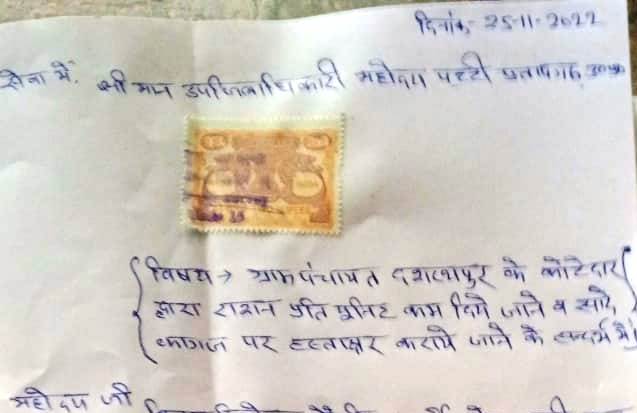 दिनांक- 25-11-2022
सेवा में. श्री मान उपजिलाधिकारी महोदय पट्टी प्रतापगढ़ उ०प्र०
विषय → ग्राम पंचायत दशरथपुर के कोटेदार
द्वारा राशन प्रति यूनिट कम दिये जाने व सादे,
कागज पर हस्ताक्षर कराये जाने के सन्दर्भ में।
महोदय जी